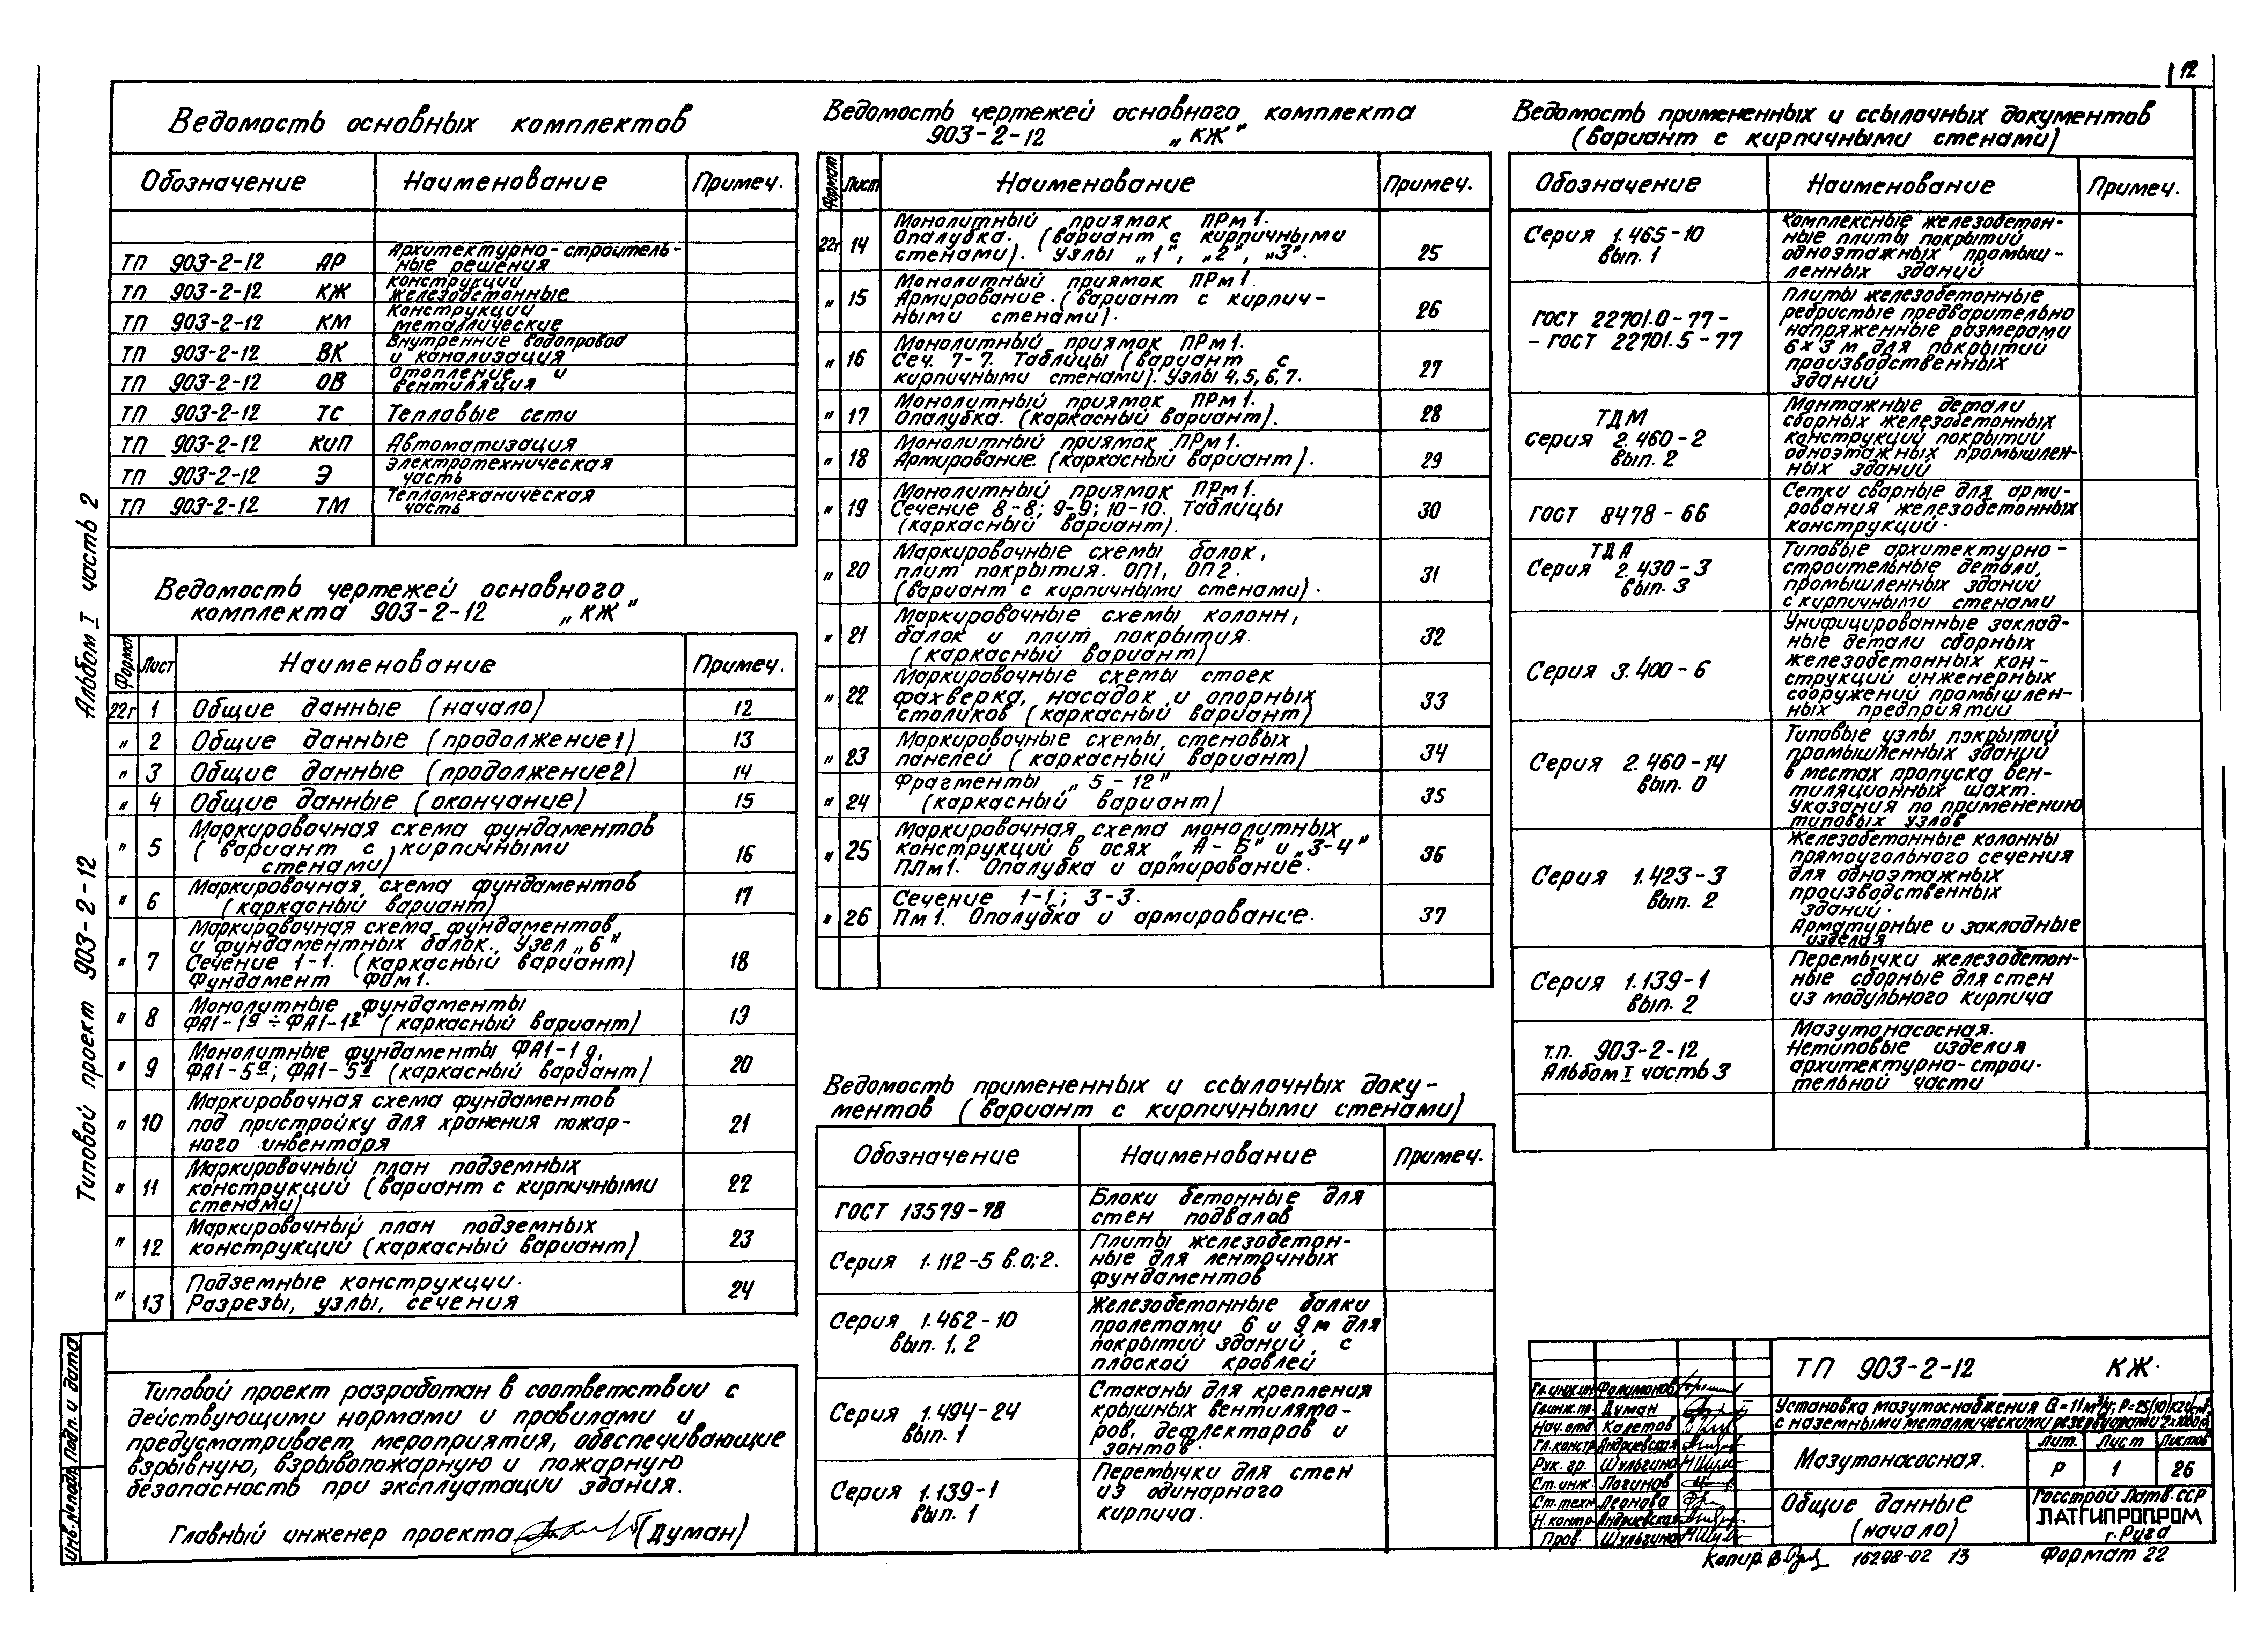 12
Ведомость основных комплектов
Обозначение Наименование Примеч.
ТП 903-2-12 АР Архитектурно-строитель-
ные решения
ТП 903-2-12 КЖ Конструкции
железобетонные
ТП 903-2-12 КМ Конструкции
металлические
ТП 903-2-12 ВК Внутренние водопровод
и канализация
ТП 903-2-12 ОВ Отопление и
вентиляция
ТП 903-2-12 ТС Тепловые сети
ТП 903-2-12 КиП Автоматизация
ТП 903-2-12 Э Электротехническая
часть
ТП 903-2-12 ТМ Тепломеханическая
часть
Ведомость чертежей основного
комплекта 903-2-12 „КЖ"
Формат Лист Наименование Примеч.
22г 1 Общие данные (начало) 12
" 2 Общие данные (продолжение 1) 13
" 3 Общие данные (продолжение 2) 14
" 4 Общие данные (окончание) 15
" 5 Маркировочная схема фундаментов
(вариант с кирпичными
стенами) 16
" 6 Маркировочная схема фундаментов
(каркасный вариант) 17
" 7 Маркировочная схема фундаментов
и фундаментных балок. Узел „6"
Сечение 1-1. (каркасный вариант)
Фундамент ФОм1. 18
" 8 Монолитные фундаменты
ФА1-1а ÷ ФА1-1г (каркасный вариант) 19
" 9 Монолитные фундаменты ФА1-1д,
ФА1-5а; ФА1-5б (каркасный вариант) 20
" 10 Маркировочная схема фундаментов
под пристройку для хранения пожар-
ного инвентаря 21
" 11 Маркировочный план подземных
конструкций (вариант с кирпичными
стенами) 22
" 12 Маркировочный план подземных
конструкций (каркасный вариант) 23
" 13 Подземные конструкции.
Разрезы, узлы, сечения 24
Типовой проект разработан в соответствии с
действующими нормами и правилами и
предусматривает мероприятия, обеспечивающие
взрывную, взрывопожарную и пожарную
безопасность при эксплуатации здания.
Главный инженер проекта (Думан)
Ведомость чертежей основного комплекта
903-2-12 „КЖ"
Формат Лист Наименование Примеч.
22г 14 Монолитный приямок ПРм1.
Опалубка. (вариант с кирпичными
стенами). Узлы „1", „2", „3". 25
" 15 Монолитный приямок ПРм1.
Армирование. (вариант с кирпич-
ными стенами). 26
" 16 Монолитный приямок ПРм1.
Сеч. 7-7. Таблицы (вариант с
кирпичными стенами). Узлы 4,5,6,7. 27
" 17 Монолитный приямок ПРм1.
Опалубка. (каркасный вариант). 28
" 18 Монолитный приямок ПРм1.
Армирование. (каркасный вариант). 29
" 19 Монолитный приямок ПРм1.
Сечение 8-8; 9-9; 10-10. Таблицы
(каркасный вариант). 30
" 20 Маркировочные схемы балок,
плит покрытия. ОП1, ОП2.
(вариант с кирпичными стенами). 31
" 21 Маркировочные схемы колонн,
балок и плит покрытия.
(каркасный вариант) 32
" 22 Маркировочные схемы стоек
фахверка, насадок и опорных
столиков (каркасный вариант) 33
" 23 Маркировочные схемы стеновых
панелей (каркасный вариант) 34
" 24 Фрагменты „5-12"
(каркасный вариант) 35
" 25 Маркировочная схема монолитных
конструкций в осях „А-Б" и „3-4"
ПЛм1. Опалубка и армирование. 36
" 26 Сечение 1-1; 3-3.
Пм1. Опалубка и армирование. 37
Ведомость примененных и ссылочных доку-
ментов (вариант с кирпичными стенами)
Обозначение Наименование Примеч.
ГОСТ 13579-78 Блоки бетонные для
стен подвалов
Серия 1.112-5 в.0;2. Плиты железобетон-
ные для ленточных
фундаментов
Серия 1.462-10
вып. 1,2 Железобетонные балки
пролетами 6 и 9м для
покрытий зданий с
плоской кровлей
Серия 1.494-24
вып. 1 Стаканы для крепления
крышных вентилято-
ров, дефлекторов и
зонтов.
Серия 1.139-1
вып. 1 Перемычки для стен
из одинарного
кирпича.
Ведомость примененных и ссылочных документов
(вариант с кирпичными стенами)
Обозначение Наименование Примеч.
Серия 1.465-10
вып. 1 Комплексные железобетон-
ные плиты покрытий
одноэтажных промыш-
ленных зданий
ГОСТ 22701.0-77-
-ГОСТ 22701.5-77 Плиты железобетонные
ребристые предварительно
напряженные размерами
6×3 м для покрытий
производственных
зданий
ТДМ
серия 2.460-2
вып. 2 Монтажные детали
сборных железобетонных
конструкций покрытий
одноэтажных промышлен-
ных зданий
ГОСТ 8478-66 Сетки сварные для арми-
рования железобетонных
конструкций.
ТДА
Серия 2.430-3
вып. 3 Типовые архитектурно-
строительные детали,
промышленных зданий
с кирпичными стенами
Серия 3.400-6 Унифицированные заклад-
ные детали сборных
железобетонных кон-
струкций инженерных
сооружений промышлен-
ных предприятий
Серия 2.460-14
вып. 0 Типовые узлы покрытий
промышленных зданий
в местах пропуска вен-
тиляционных шахт.
Указания по применению
типовых узлов
Серия 1.423-3
вып. 2 Железобетонные колонны
прямоугольного сечения
для одноэтажных
производственных
зданий.
Арматурные и закладные
изделия
Серия 1.139-1
вып. 2 Перемычки железобетон-
ные сборные для стен
из модульного кирпича
т.п. 903-2-12
Альбом I часть 3 Мазутонасосная.
Нетиповые изделия
архитектурно-строи-
тельной части
Гл.инж.ин Филимонов
Гл.инж.пр. Думан
Нач.отд Калетов
Гл.констр Андриевская
Рук. гр. Шульгина
Ст.инж. Логинов
Ст.техн Леонова
Н.контр Андриевская
Пров. Шульгина
ТП 903-2-12 КЖ.
Установка мазутоснабжения Q=11м³/ч; Р=25(10)кгс/см²
с наземными металлическими резервуарами 2×1000м³
Мазутонасосная.
Лит. Лист Листов
Р 1 26
Общие данные
(начало)
Госстрой Латв.ССР
ЛАТГИПРОПРОМ
г.Рига
Копир. 16298-02 13 Формат 22
Альбом I часть 2
Типовой проект 903-2-12
Инв.№ подл. Подп. и дата